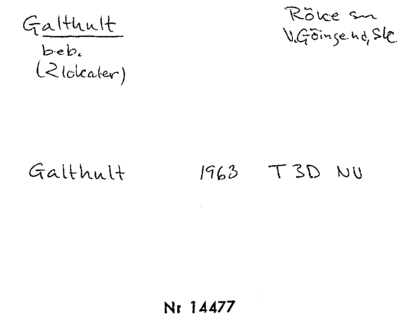 Galthult
beb.
(2 lokaler)
Röke sn
V.Göinge hd, Sk
Galthult 1963 T 3D NU
Nr 14477